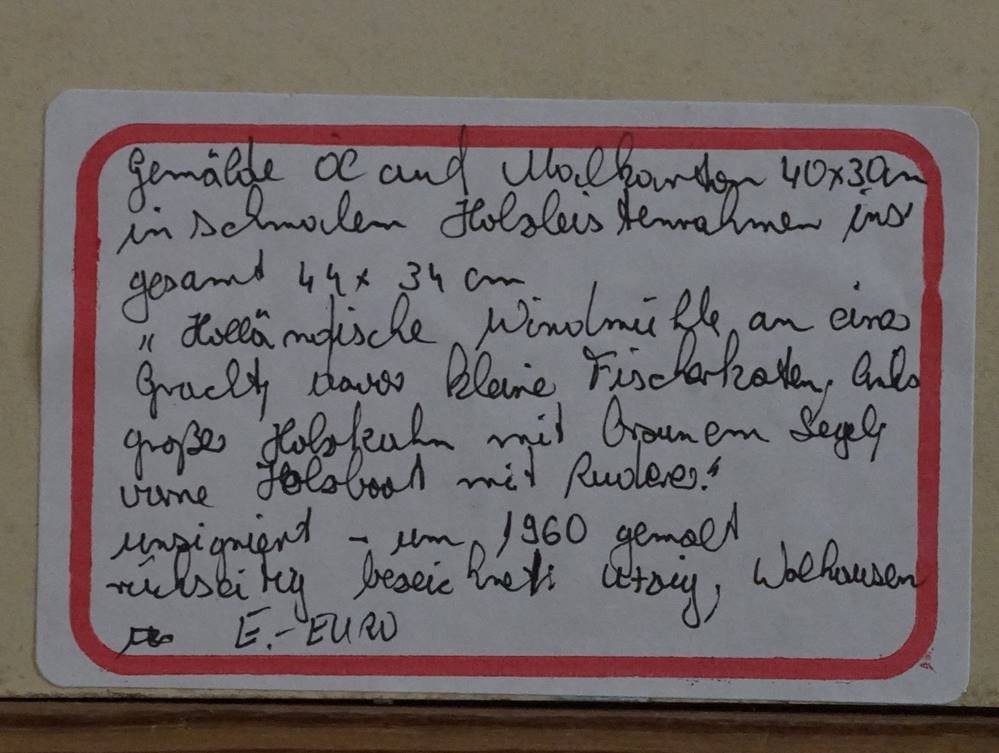 Gemälde Öl auf Malkarton 40x30cm
in schmalem Holzleistenrahmen ins
gesamt 44x34 cm
„Holländische Windmühle an einer
Gracht, davor kleine Fischerkaten, links
großer Holzkahn mit braunem Segel,
vorne Holzboot mit Ruderer."
unsigniert - um 1960 gemalt
rückseitig bezeichnet: Wolhausen
E.-EURO